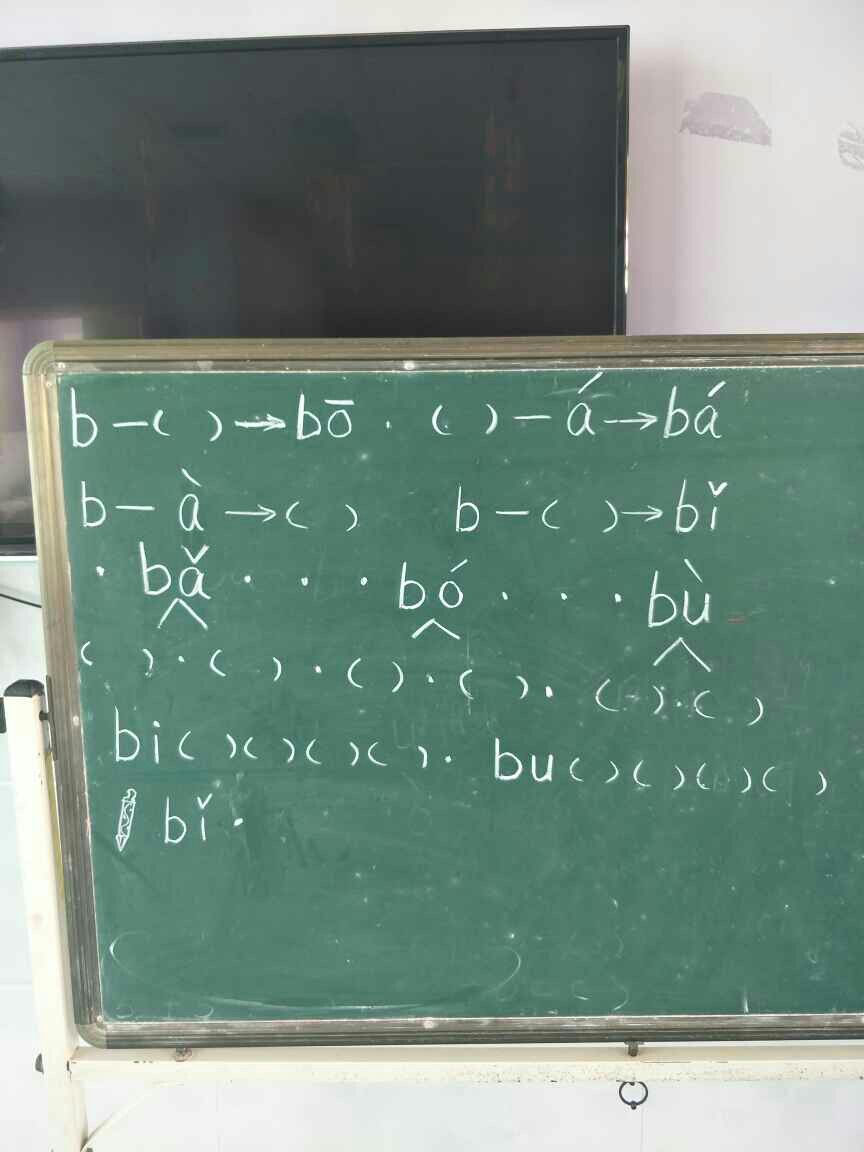 b—( )→bō · ( )—á→bá
b—à→( ) b—( )→bǐ
· bǎ · · · bó · · · bù
( )·( )·( )·( )·( )·( )
bi( )( )( )( )· bu( )( )( )( )
bǐ·